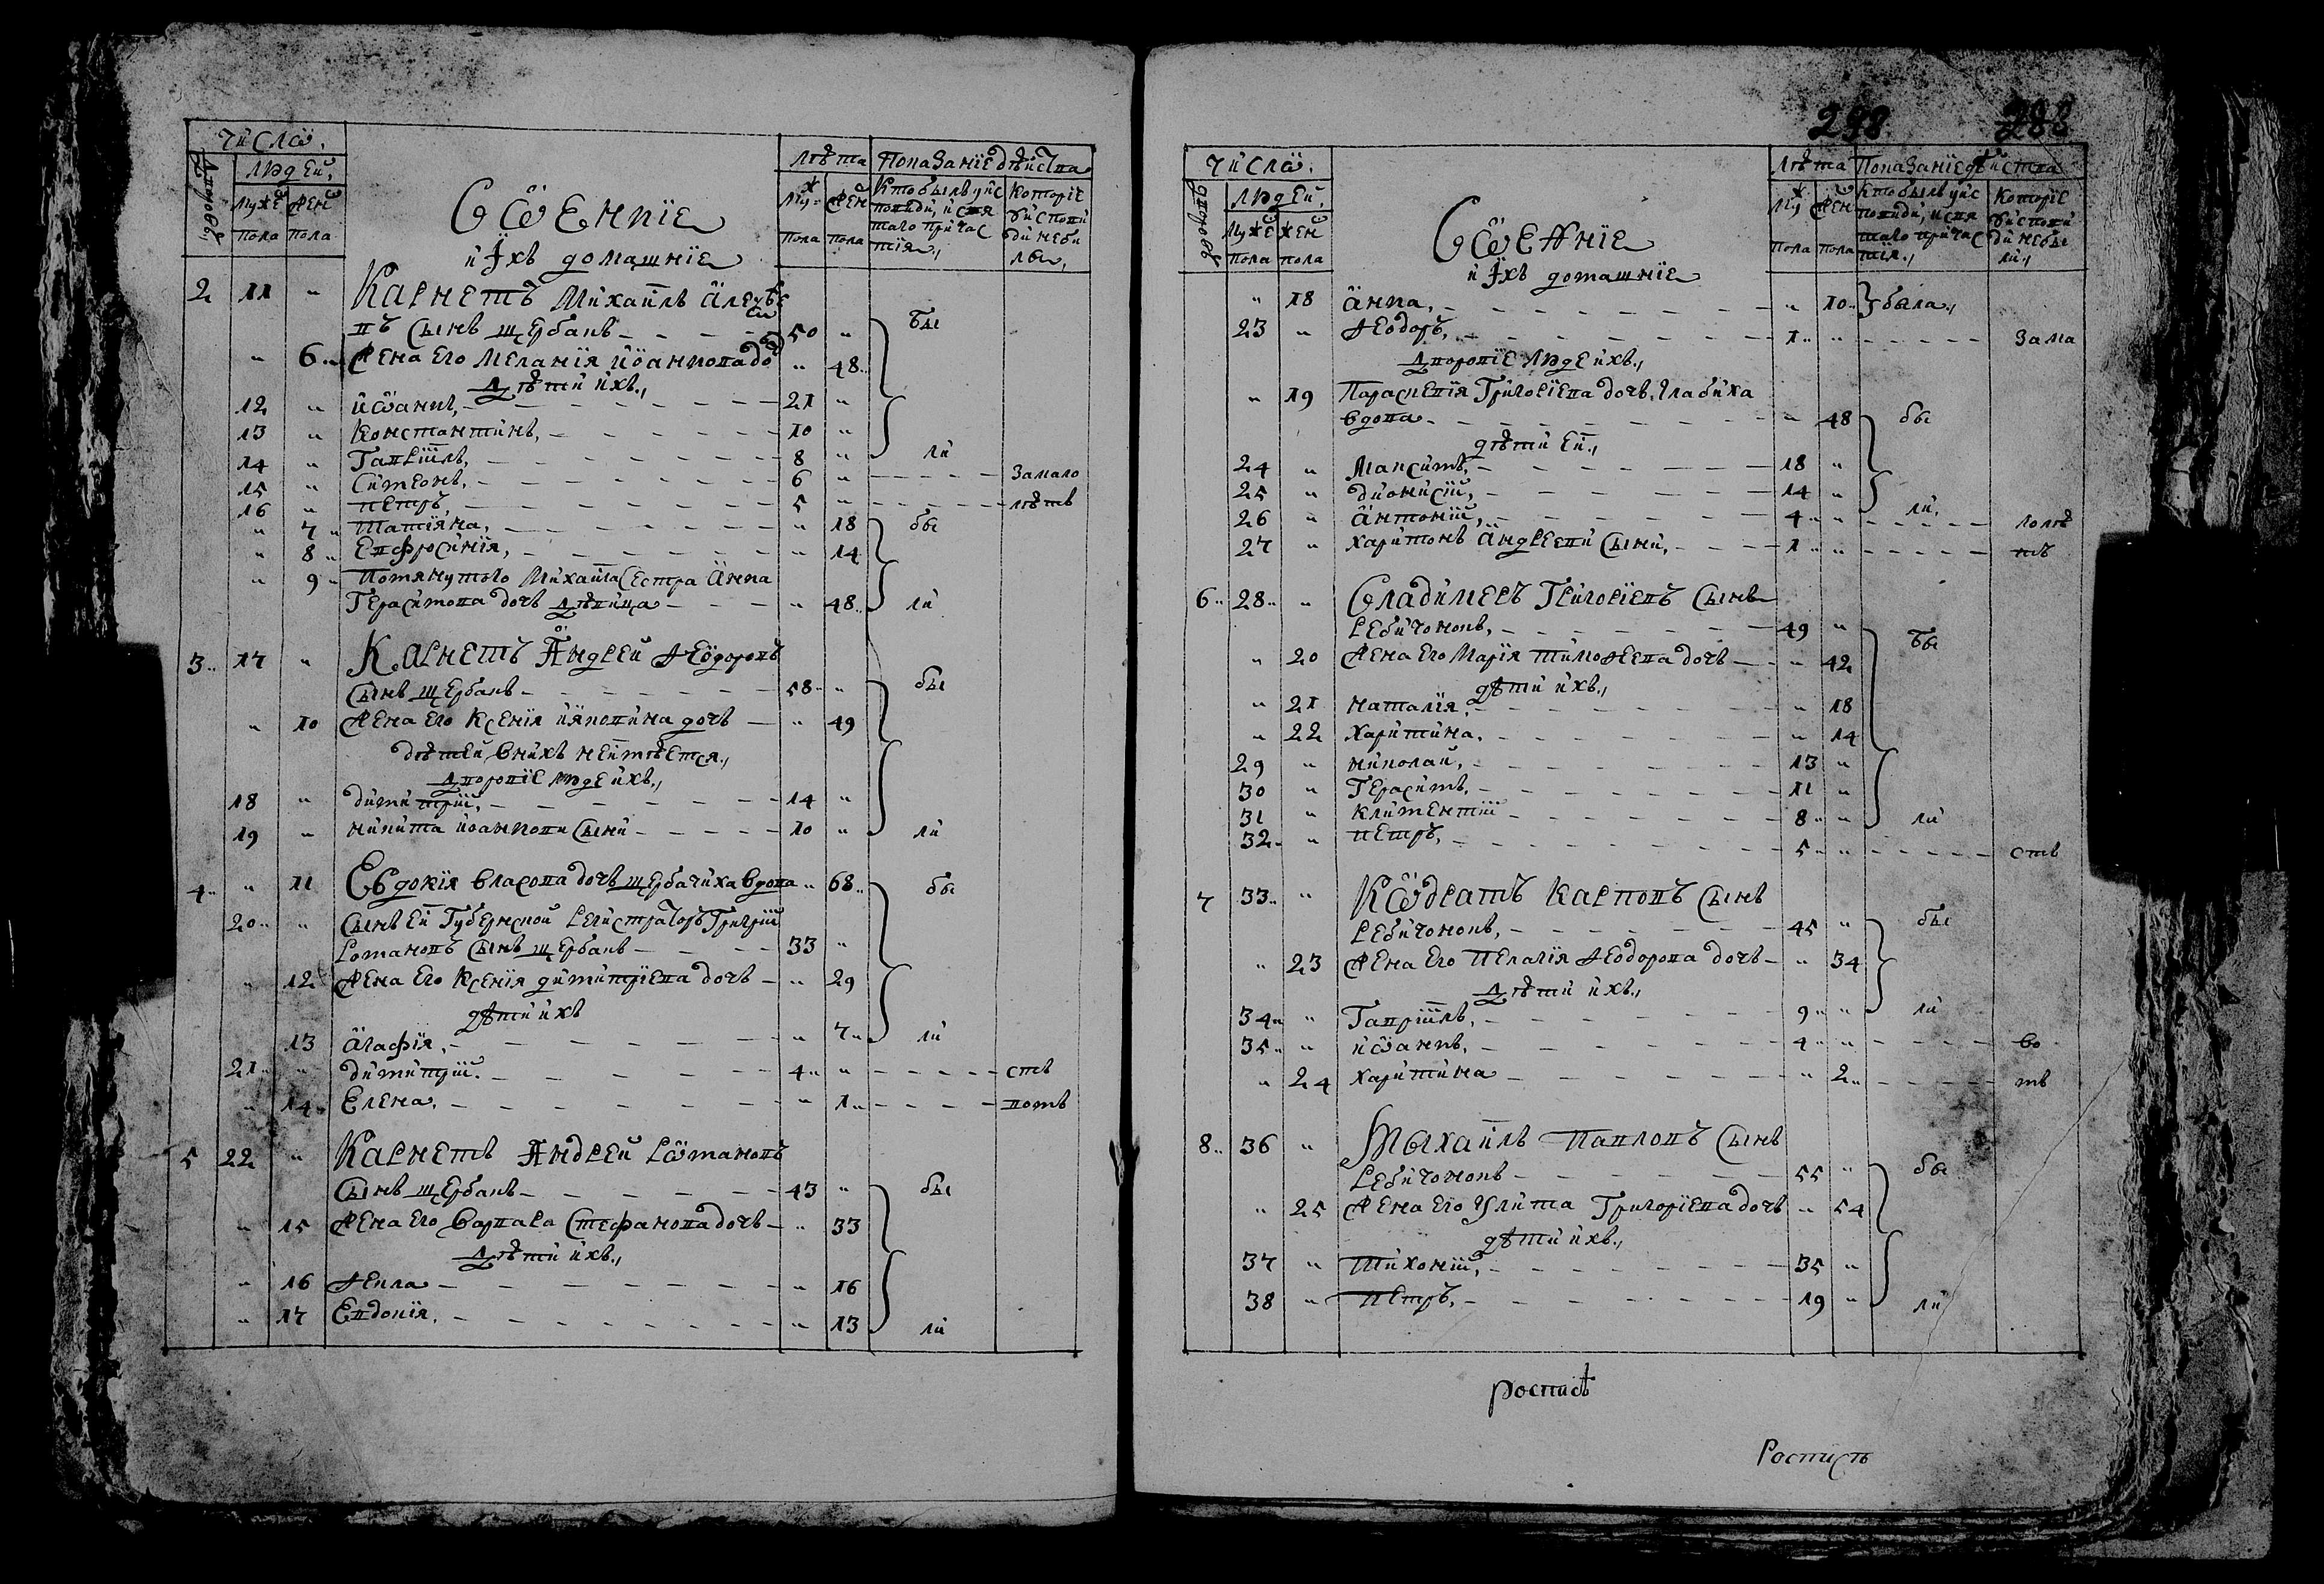 Число.
Людей.
Дворовъ
Муже Жен
пола пола
Военнїе
и ихъ домашнїе
Лѣта
Муж Жен
пола пола
Показанїе дѣйства
Кто былъ у ис
повиди, и свя
таго причас
тїя.,
Которїе
у исповѣ
ди неби
лы.,
2 11 „ Карнетъ Михаилъ Алексѣе
въ сынъ Щербакъ 50 „ бы
„ 6 Жена его Меланїя Иоаннова до 48
Дѣти ихъ.,
12 „ Иоаннъ, 21 „
13 „ Константинъ, 10 „
14 „ Гавріилъ, 8 „ ли
15 „ Симеонъ, 6 „ Замало
16 „ Петръ, 5 „ лѣтъ
„ 7 Татїяна, „ 18 бы
„ 8 Евфросинїя, „ 14
„ 9 Помянутого Михаила сестра Анна
Герасимова дочъ дѣвица „ 48 ли
3 17 „ Карнетъ Андрей Ѳеодоровъ
сынъ Щербакъ 58 „ бы
„ 10 Жена его Ксенїя Иаковина дочъ „ 49
дѣтей в нихъ неимѣется.,
Дворовїе люде ихъ.,
18 „ Димитрїй, 14 „
19 „ Никита Иоаннови сыни 10 „ ли
4 „ 11 Евдокїя Власова дочъ Щербачиха вдова „ 68 бы
20 „ Сынъ ей Губернской регистраторъ Григрїй
Романовъ сынъ Щербакъ 33 „
„ 12 Жена его Ксенїя Димитрїева дочъ „ 29
дѣти ихъ
13 Агафїя, „ 7 ли
21 „ Димитрїй. 4 „ ств
„ 14 Елена, „ 1 вомъ
5 22 „ Карнетъ Андрей Романовъ
сынъ Щербакъ 43 „ бы
„ 15 Жена его Варвара Стефанова дочъ „ 33
Дѣти ихъ.,
„ 16 Ѳекла „ 16
„ 17 Евдокїя, „ 13 ли
298 288
Число.
Людей.
Дворовъ
Муже Жен
пола пола
Военнїе
и ихъ домашнїе
Лѣта
Му Жен
пола пола
Показанїе дѣйства
Кто былъ у ис
повиди, и свя
таго причас
тїя.,
Которїе
у исповѣ
ди небы
ли.,
„ 18 Анна, „ 10 была.,
23 „ Ѳеодоръ, 1 „ Зама
Дворовїе люде ихъ.,
„ 19 Параскевїя Григорїева дочъ,
вдова „ 48 бы
дѣти ей.,
24 „ Максимъ, 18 „
25 „ Дионисїй, 14 „ ли,
26 „ Антонїй, 4 „ лолѣ
27 „ Харитонъ Андрееви сыни, 1 „ тъ
6 28 „ Владимеръ Григорїевъ сынъ
Ребичонокъ, 49 „ бы
„ 20 Жена его Марїя Тимоѳеева дочъ „ 42
дѣти ихъ.,
„ 21 Наталїя, „ 18
„ 22 Харитина, „ 14
29 „ Николай, 13 „
30 „ Герасимъ, 11 „
31 „ Климентїй 8 „ ли
32 „ Петръ, 5 „ ств
7 33 „ Кодратъ Карповъ сынъ
Ребичонокъ, 45 „ бы
„ 23 Жена его Пелагїя Ѳеодорова дочъ „ 34
Дѣти ихъ.,
34 „ Гавріилъ, 9 „ ли
35 „ Иоаннъ, 4 „ во
„ 24 Харитина „ 2 мъ
8 36 „ Мыхаилъ Павловъ сынъ
Ребичонокъ 55 „ бы
„ 25 Жена его Улита Григорїева дочъ „ 54
дѣти ихъ.,
37 „ Тихонїй, 35 „
38 „ Петръ, 19 „ ли
роспись
Роспись